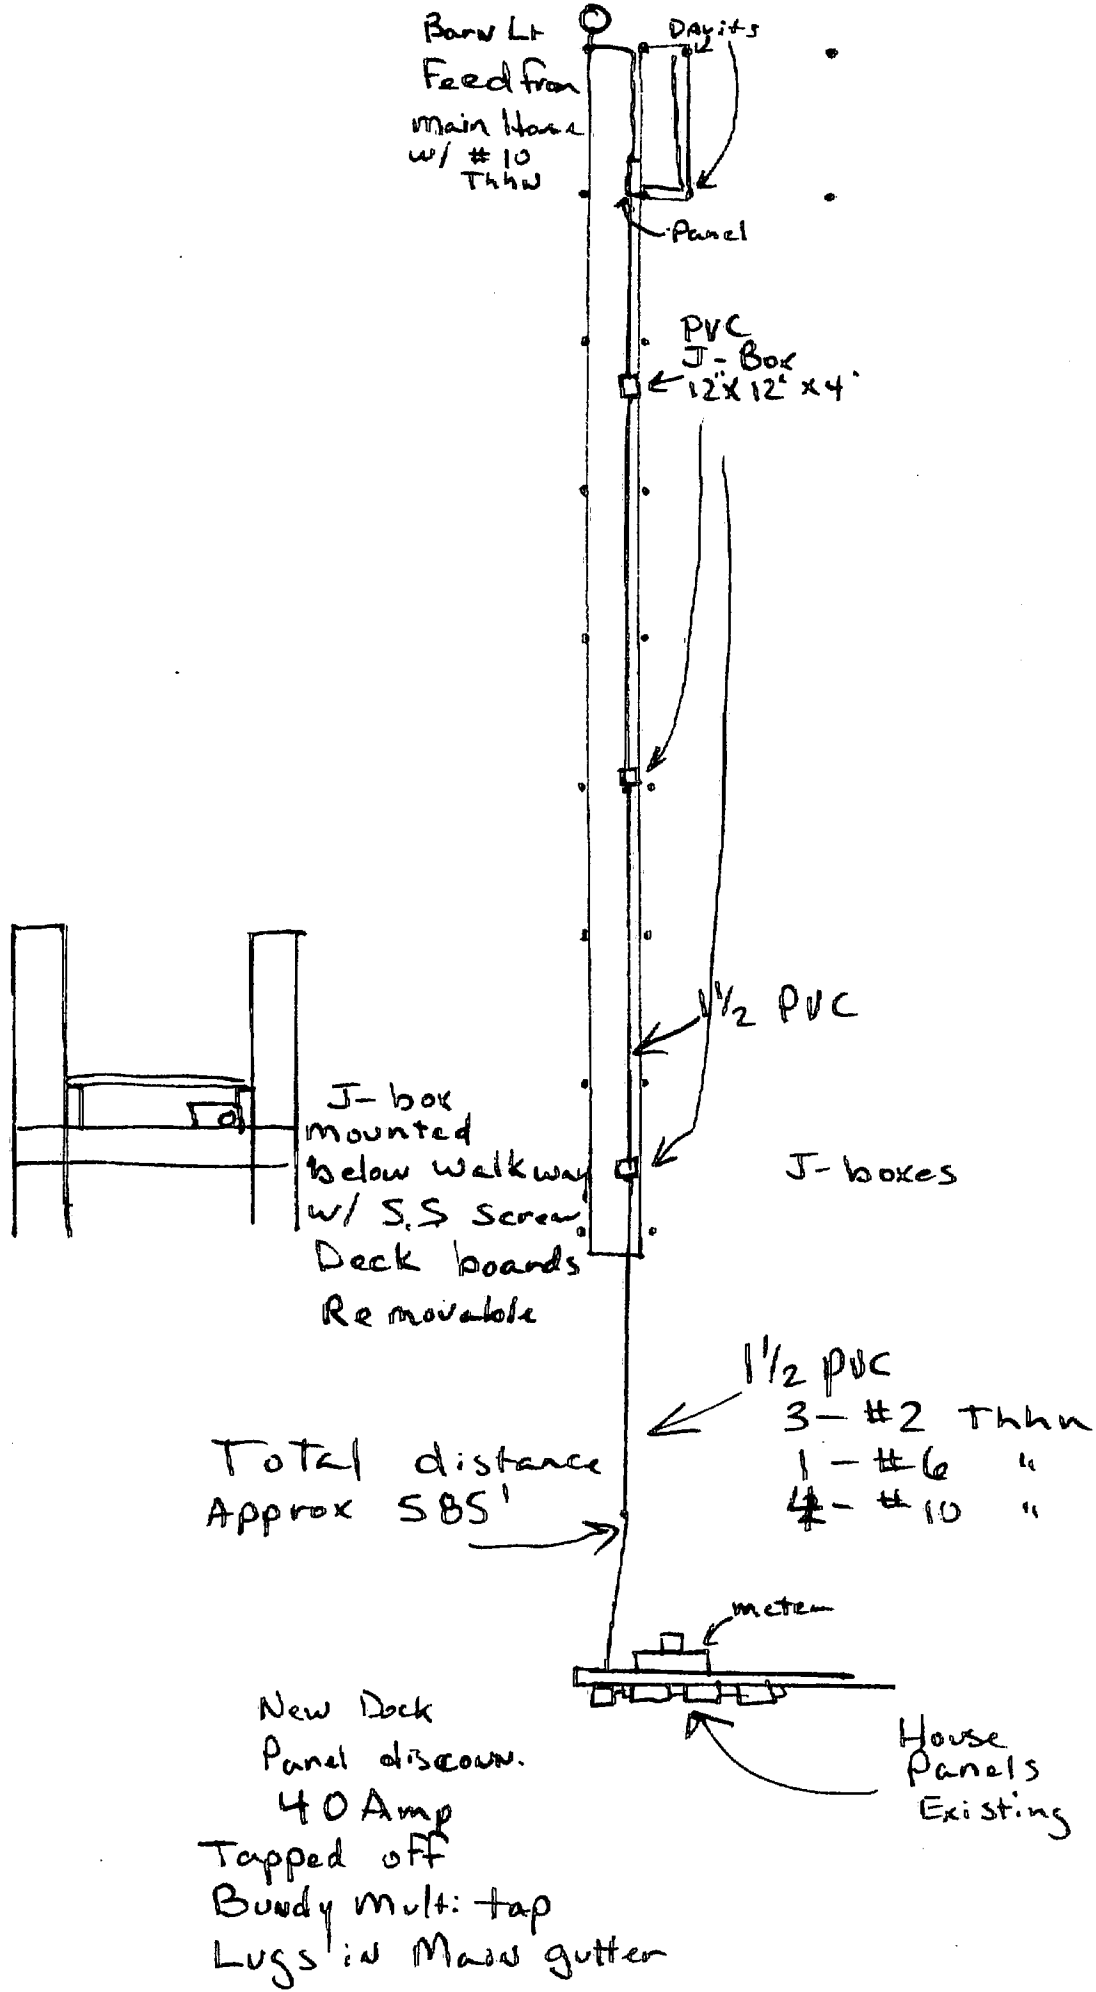 Barn Lt
Feed from
main House
w/ #10
Thhn
Davits
Panel
PVC
J-Box
12"x12"x4"
1 1/2 PVC
J-box
mounted
below walkway
w/ S.S screw
Deck boards
Removable
J-boxes
1 1/2 PVC
3- #2 Thhn
1 - #6 "
4- #10 "
Total distance
Approx 585'
meter
New Dock
Panel disconn.
40 Amp
Tapped off
Bundy Multi tap
Lugs in Main gutter
House
Panels
Existing